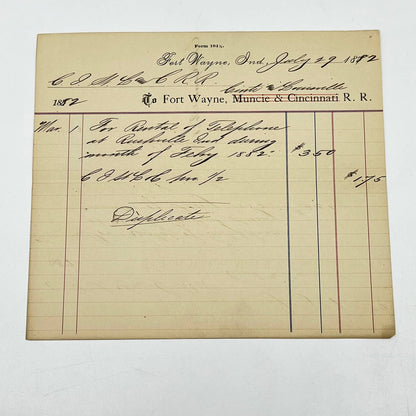 Form 184½.
Fort Wayne, Ind, July 29 1882
C. I. St. L & C R.R.
Cinti & Louisville
1882 To Fort Wayne, Muncie & Cincinnati R. R.
Mar. 1 For Rental of Telephone
at Rushville Ind during
month of Feby 1882. $3.50
C I St L & C 1/2 $1.75
Duplicate